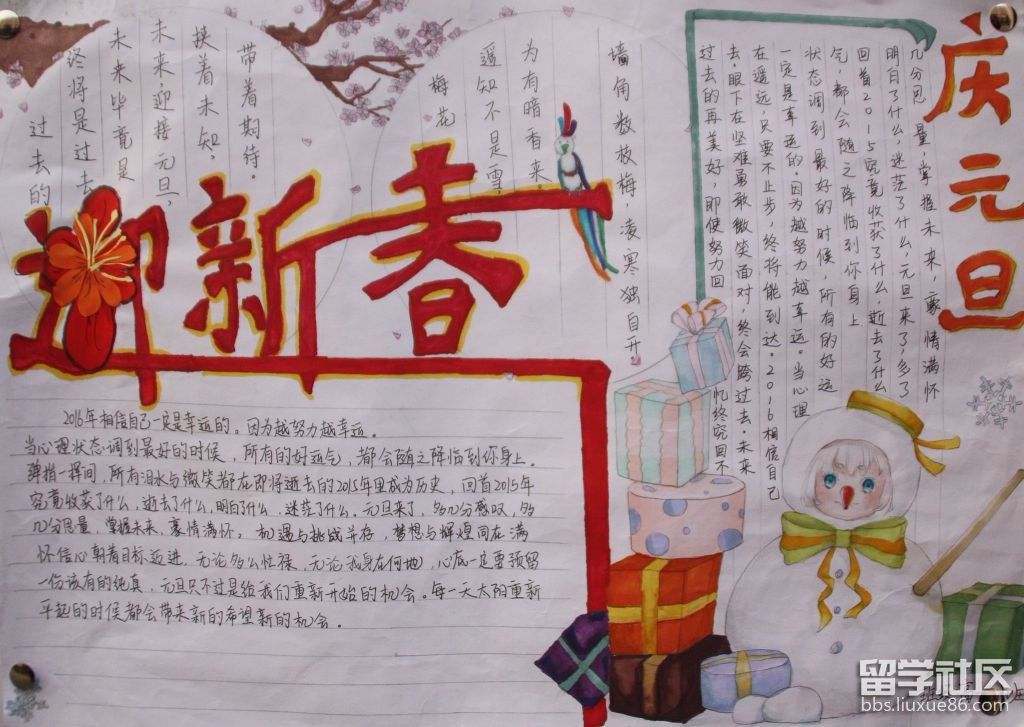 庆元旦
几分思量,掌握未来,豪情满怀
明白了什么,迷茫了什么,元旦来了,多了
回首2015究竟收获了什么,逝去了什么
气,都会随之降临到你身上
状态调到最好的时候,所有的好运
一定是幸运的。因为越努力越幸运。当心理
在遥远,只要不止步,终将能到达。2016相信自己
去。眼下在坚难勇敢微笑面对,终会跨过去。未来
过去的再美好,即使努力回忆终究回不
墙角数枝梅,凌寒独自开。
为有暗香来。
遥知不是雪,
梅花
带着期待。
挟着未知,
未来,迎接元旦,
未来毕竟是
终将是过去
过去的
迎新春
2016年相信自己一定是幸运的。因为越努力越幸运。
当心理状态调到最好的时候,所有的好运气,都会随之降临到你身上。
弹指一挥间,所有泪水与微笑都在即将逝去的2015年里成为历史,回首2015年
究竟收获了什么,逝去了什么,明白了什么,迷茫了什么。元旦来了,多几分感叹,多
几分思量,掌握未来,豪情满怀。机遇与挑战并存,梦想与辉煌同在满
怀信心朝着目标迈进,无论多么忙碌,无论我身在何地,心底一定要预留
一份该有的纯真,元旦只不过是给我们重新开始的机会。每一天太阳重新
升起的时候都会带来新的希望新的机会。
留学社区
bbs.liuxue86.com